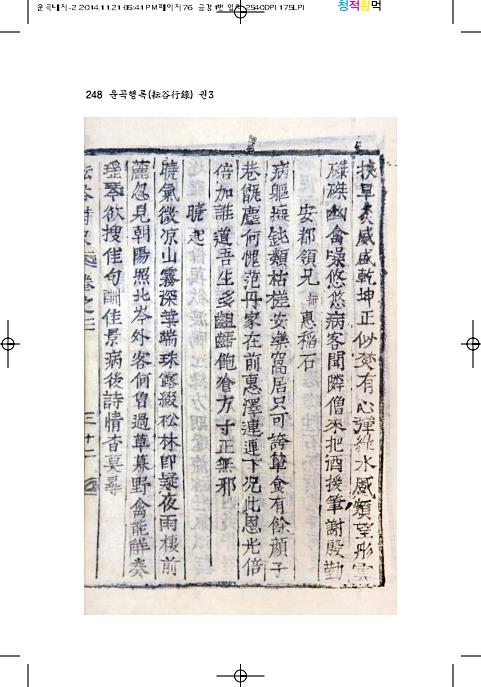 운곡대지-2 2014.11.21 05:41 PM 페이지76
2540DPI 175LPI
청적황먹
248 운곡행록(耘谷行錄) 권3
旱炎威盛乾坤正似焚有心彈綠水感類望彤雲
磔磔幽禽噪悠悠病客聞隣僧來把酒援筆謝殷勤
安都領兄 惠稻石
病軀癡鈍類枯槎安樂窩居只可誇簞食有餘顔子
巷甑塵何愧范丹家在前惠澤連連下况此恩光倍
倍加誰道吾生多齟齬飽飡方寸正無邪
曉起
曉氣微凉山霧深葉端珠露綴松林卽疑夜雨棲前
麓忽見朝陽照北岑外客何曾過草幕野禽能解奏
瑤琴欲搜佳句酬佳景病後詩情杳莫尋
耘谷詩史 卷之三 三十二